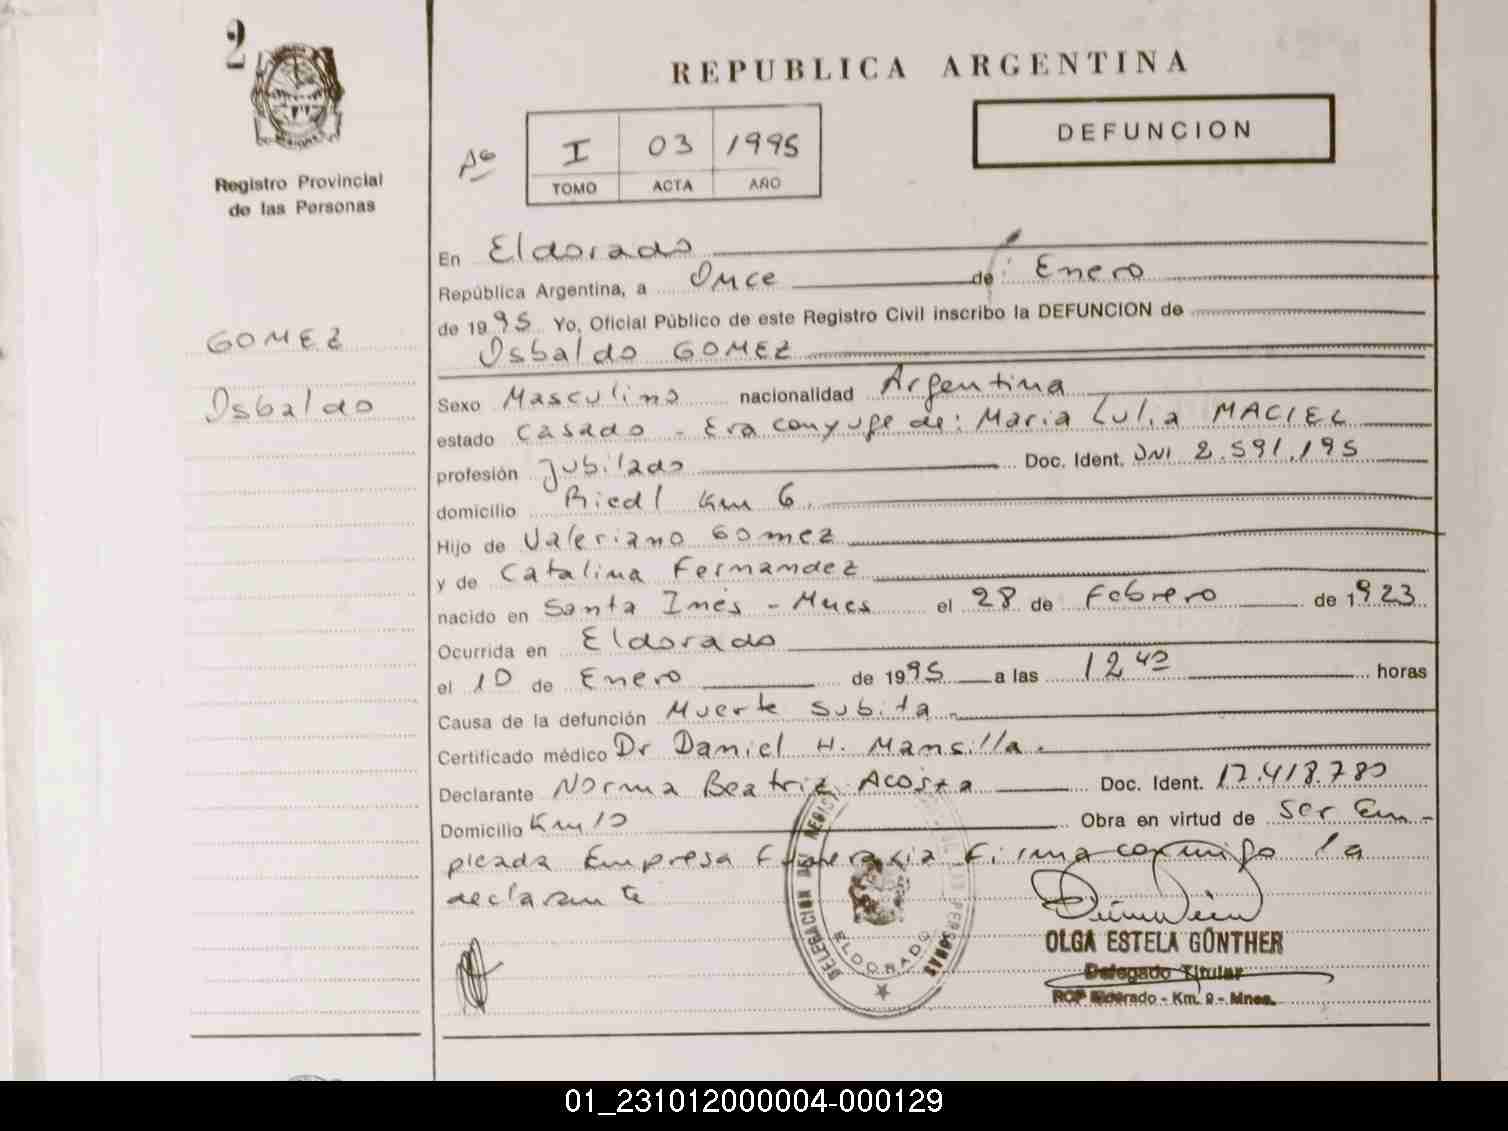 2
REPUBLICA ARGENTINA
DEFUNCION
I 03 1995
TOMO ACTA AÑO
Registro Provincial
de las Personas
GOMEZ
Osbaldo
En Eldorado
República Argentina, a Once de Enero
de 1995 Yo, Oficial Público de este Registro Civil inscribo la DEFUNCION de
Osbaldo GOMEZ
Sexo Masculino nacionalidad Argentina
estado Casado - Era conyuge de: Maria Lulia MACIEL
profesión Jubilado Doc. Ident. DNI 2.591.195
domicilio Riedl Km 6.
Hijo de Valeriano Gomez
y de Catalina Fernandez
nacido en Santa Inés - Mnes el 28 de Febrero de 1923
Ocurrida en Eldorado
el 10 de Enero de 1995 a las 12 40 horas
Causa de la defunción Muerte Subita -
Certificado médico Dr Daniel H. Mansilla.
Declarante Norma Beatriz Acosta Doc. Ident. 17.418.780
Domicilio Km 10 Obra en virtud de Ser Em-
pleada Empresa Funeraria Firma conmigo la
declarante
DELEGACION DEL REGISTRO PERSONAS
ELDORADO
OLGA ESTELA GÜNTHER
Delegado Titular
RCP Eldorado - Km. 9 - Mnes.
01_231012000004-000129